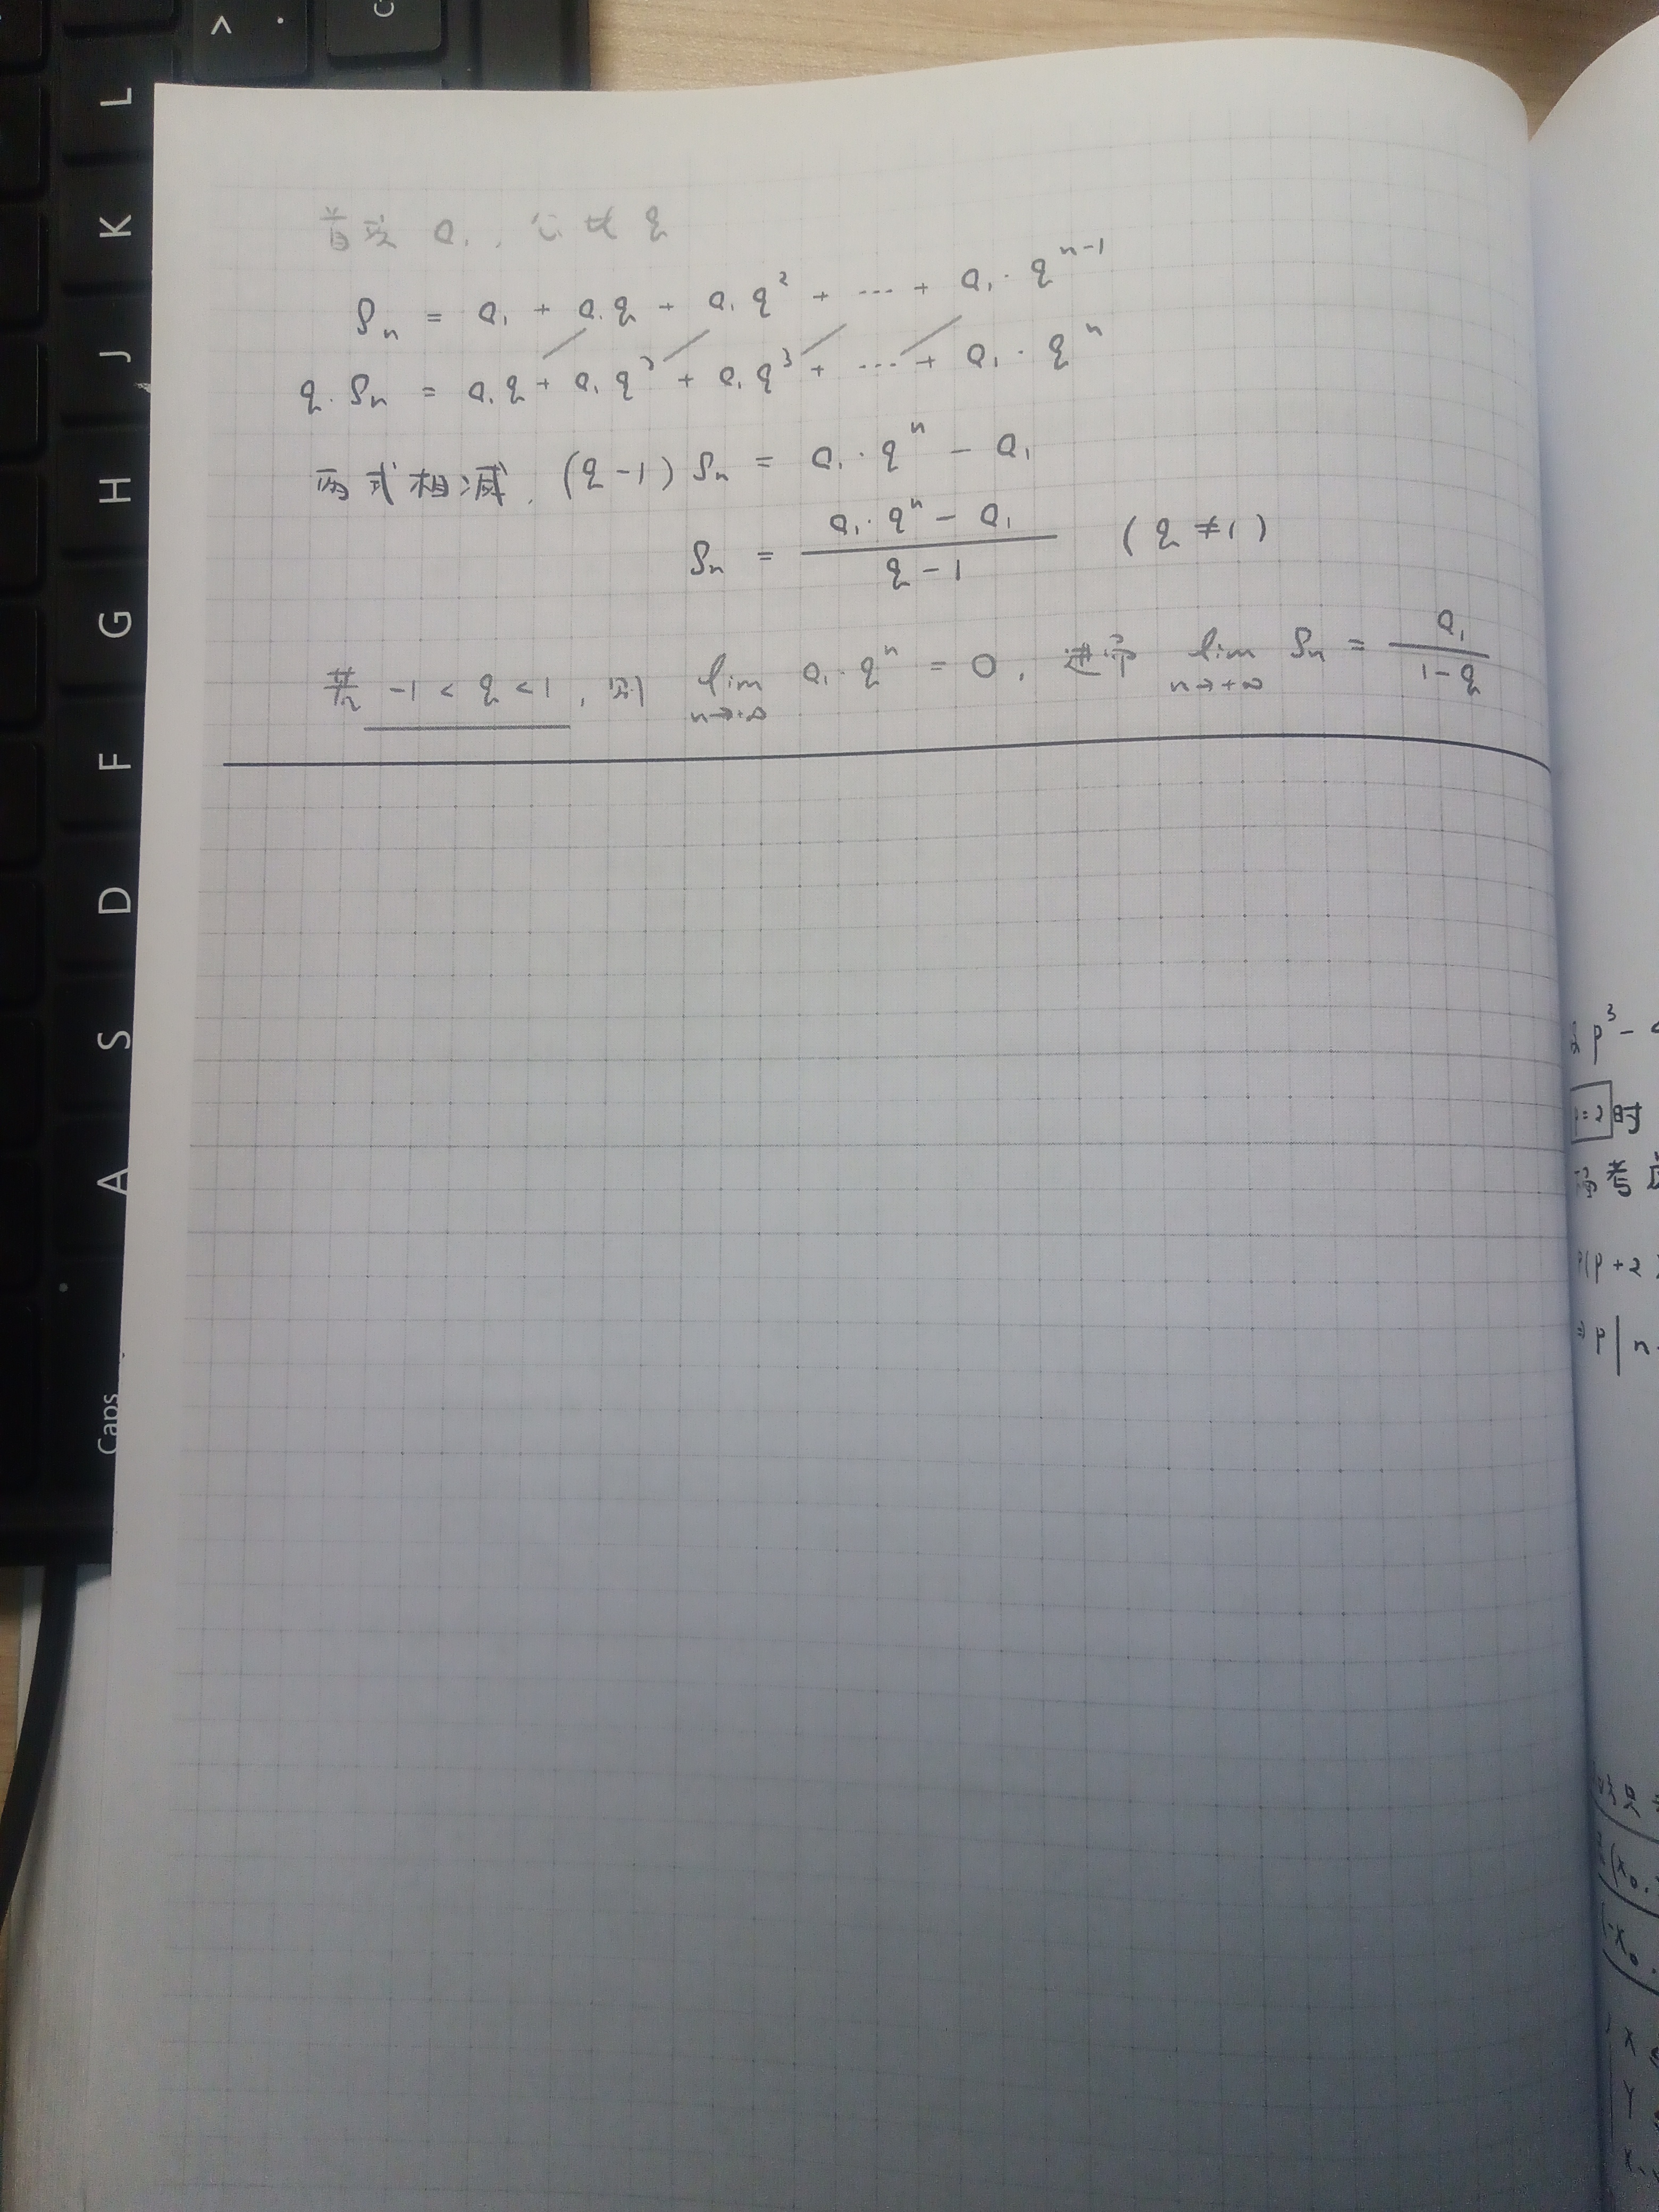 首项 a₁, 公比 q
Sₙ = a₁ + a₁q + a₁q² + ... + a₁·qⁿ⁻¹
q·Sₙ = a₁q + a₁q² + a₁q³ + ... + a₁·qⁿ
两式相减, (q-1)Sₙ = a₁·qⁿ - a₁
Sₙ = (a₁·qⁿ - a₁)/(q-1) (q≠1)
若 -1<q<1, 则 lim n→+∞ a₁·qⁿ = 0, 进而 lim n→+∞ Sₙ = a₁/(1-q)
L
K
J
H
G
F
D
S
A
Caps
>
.
p³-
=2时
考
p(p+2
⇒p|n
(x₀,
(-x₀,
x
y